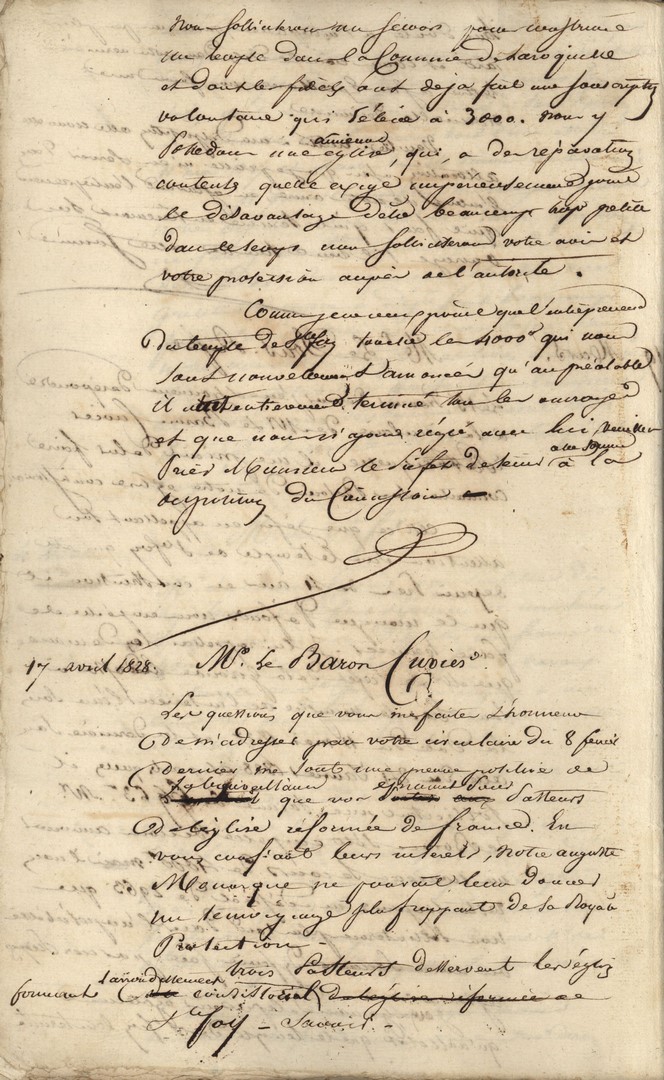 nous solliciterons un secours pour construire
un temple dans la Commune de Laroquille
et dont les fidèls ont deja fait une souscription
volontaire qui s'élève à 3000. nous y
possedons une ancienne église, qui, a des réparations
contents quelle exige imperieusement, joint
le désavantage d'être beaucoup trop petite
dans le temps nous solliciterons votre avis et
votre protection auprès de l'autorité.
Comme je ne veux point que l'entrepreneur
du temple de Ste foy touche les 4000 f qui nous
sont nouvellement annoncés qu'au préalable
il n'ait entierement terminé tous les ouvrages
et que nous n'ayons réglé avec lui, veuillez
Prier Monsieur le Préfet de tenir cette somme à la
disposition du Consistoire
17 avril 1828. Mr. Le Baron Cuvier.
Les questions que vous me faites l'honneur
De m'adresser par votre circulaire du 8 fevrier
dernier me sont une preuve positive de
que vos Pasteurs
De l'église réformée de france. En
vous confiant leurs interets, notre auguste
Monarque ne pouvait leur donner
un temoignage plus frappant de sa Royale
Protection -
trois Pasteurs desservent les églises
formant l'arrondissement consistorial de l'église réformée de
Ste foy - Savoir -